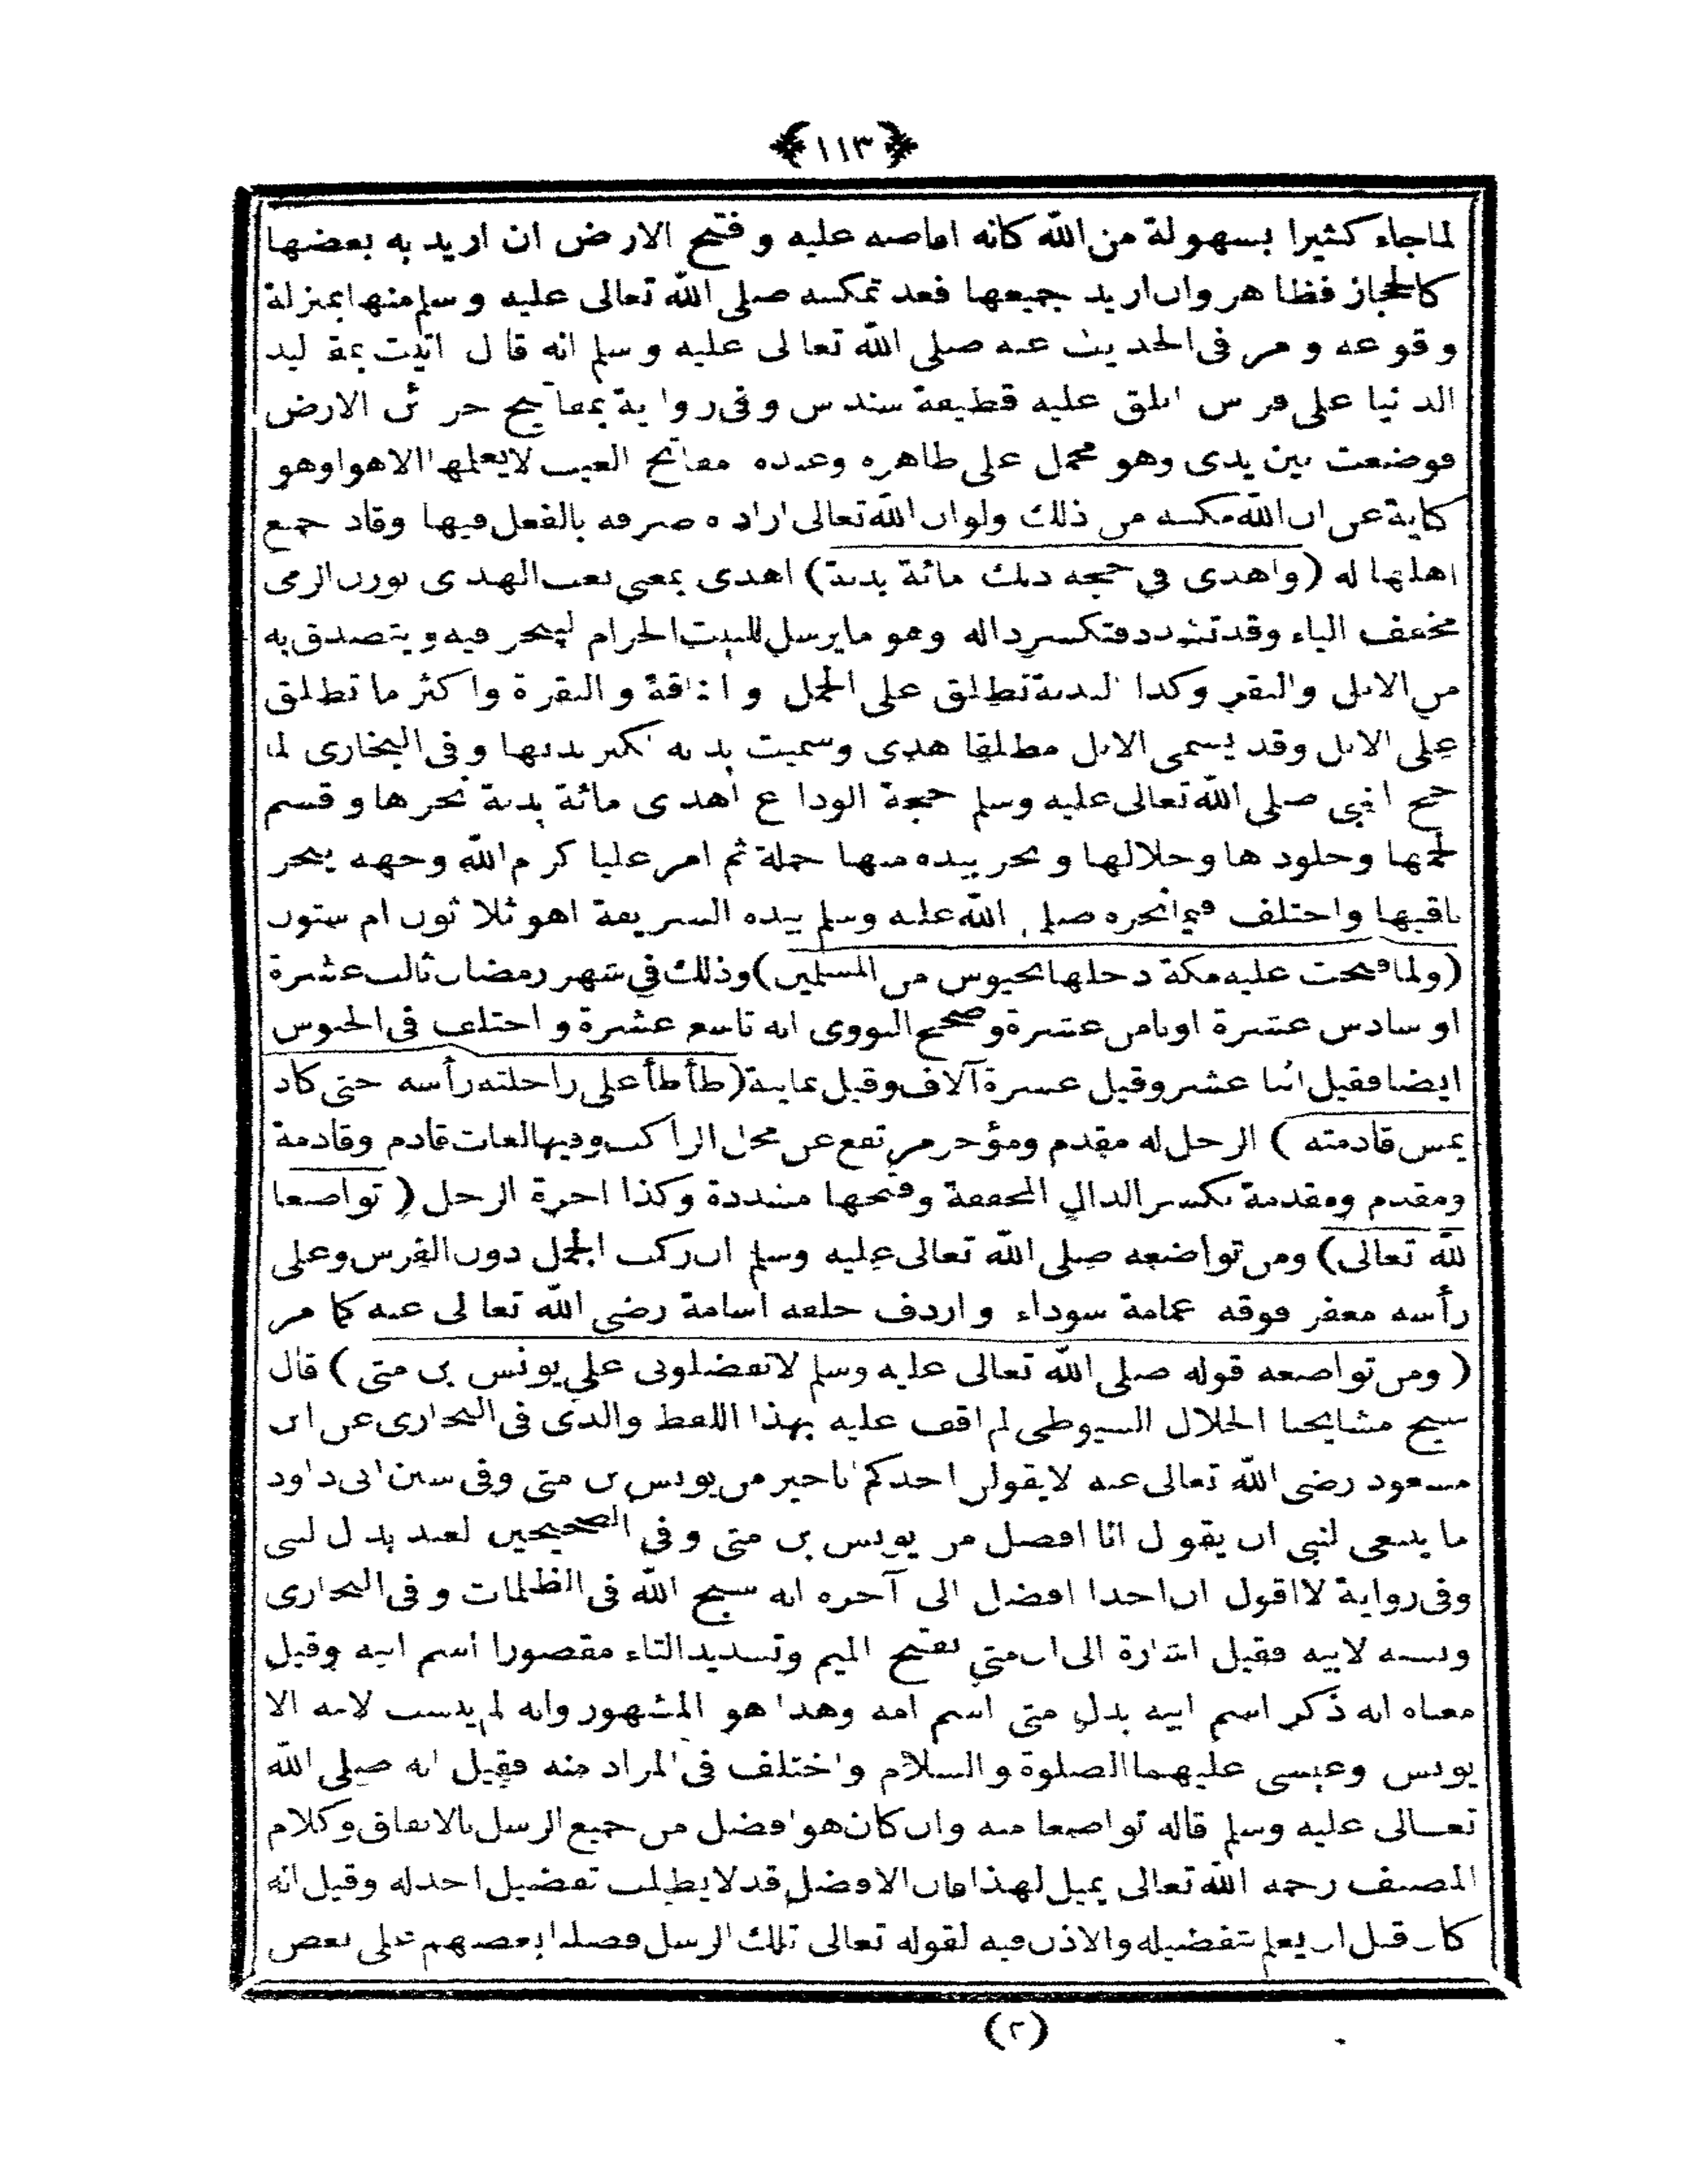 ﴿١١٣﴾
لماجاء كثيرا بسهولة من الله كأنه افاضه عليه وفتح الارض ان اريد به بعضها
كالحجاز فظاهر وان اريد جميعها فعد تمكينه صلى الله تعالى عليه وسلم منها بمنزلة
وقوعه ومر فى الحديث عنه صلى الله تعالى عليه وسلم انه قال اتيت بمقاليد
الدنيا على فرس ابلق عليه قطيفة سندس وفى رواية بمفاتيح خزائن الارض
فوضعت بين يدى وهو محمل على ظاهره وعنده مفاتح الغيب لايعلمها الاهو اوهو
كناية عن ان الله مكنه من ذلك ولو ان الله تعالى اراده صرفه بالفعل فيها وقاد جميع
اهلها له (واهدى فى حجه ذلك مائة بدنة) اهدى بمعنى بعث الهدى بوزن الرمى
مخفف الياء وقد تشدد فتكسر داله وهو مايرسل للبيت الحرام لينحر فيه ويتصدق به
من الابل والبقر وكذا البدنة تطلق على الجمل والناقة والبقرة واكثر ما تطلق
على الابل وقد يسمى الابل مطلقا هدى وسميت بدنة لكبر بدنها وفى البخارى لما
حج النبى صلى الله تعالى عليه وسلم حجة الوداع اهدى مائة بدنة نحرها وقسم
لحمها وجلودها وجلالها ونحر بيده منها جملة ثم امر عليا كرم الله وجهه ينحر
باقيها واختلف فيما نحره صلى الله عليه وسلم بيده الشريفة اهو ثلاثون ام ستون
(ولما فتحت عليه مكة دخلها بجيوش من المسلمين) وذلك فى شهر رمضان ثالث عشرة
او سادس عشرة او ثامن عشرة وصحح النووى انه تاسع عشرة واختلف فى الجيوش
ايضا فقيل اثنا عشر وقيل عشرة آلاف وقيل ثمانية (طأطأ على راحلته رأسه حتى كاد
يمس قادمته) الرحل له مقدم ومؤخر مرتفع عن محل الراكب وفيها لغات قادم وقادمة
ومقدم ومقدمة بكسر الدال المخففة وفتحها مشددة وكذا اخرة الرحل (تواضعا
لله تعالى) ومن تواضعه صلى الله تعالى عليه وسلم ان ركب الجمل دون الفرس وعلى
رأسه مغفر فوقه عمامة سوداء واردف خلفه اسامة رضى الله تعالى عنه كما مر
(ومن تواضعه قوله صلى الله تعالى عليه وسلم لاتفضلونى على يونس بن متى) قال
شيخ مشايخنا الجلال السيوطى لم اقف عليه بهذا اللفظ والذى فى البخارى عن ابن
مسعود رضى الله تعالى عنه لايقولن احدكم انا خير من يونس بن متى وفى سنن ابى داود
ما ينبغى لنبى ان يقول انا افضل من يونس بن متى وفى الصحيحين لعبد بدل لنبى
وفى رواية لااقول ان احدا افضل الى آخره انه سبح الله فى الظلمات وفى البخارى
ونسبه لابيه فقيل اشارة الى ان متى بفتح الميم وتشديد التاء مقصورا اسم ابيه وقيل
معناه انه ذكر اسم ابيه بدل متى اسم امه وهذا هو المشهور وانه لم ينسب لامه الا
يونس وعيسى عليهما الصلوة والسلام واختلف فى المراد منه فقيل انه صلى الله
تعالى عليه وسلم قاله تواضعا منه وان كان هو افضل من جميع الرسل بالاتفاق وكلام
المصنف رحمه الله تعالى يميل لهذا فان الافضل قد لايطلب تفضيل احد له وقيل انه
كان قبل ان يعلم بتفضيله والاذن فيه لقوله تعالى تلك الرسل فضلنا بعضهم على بعض
(٢)